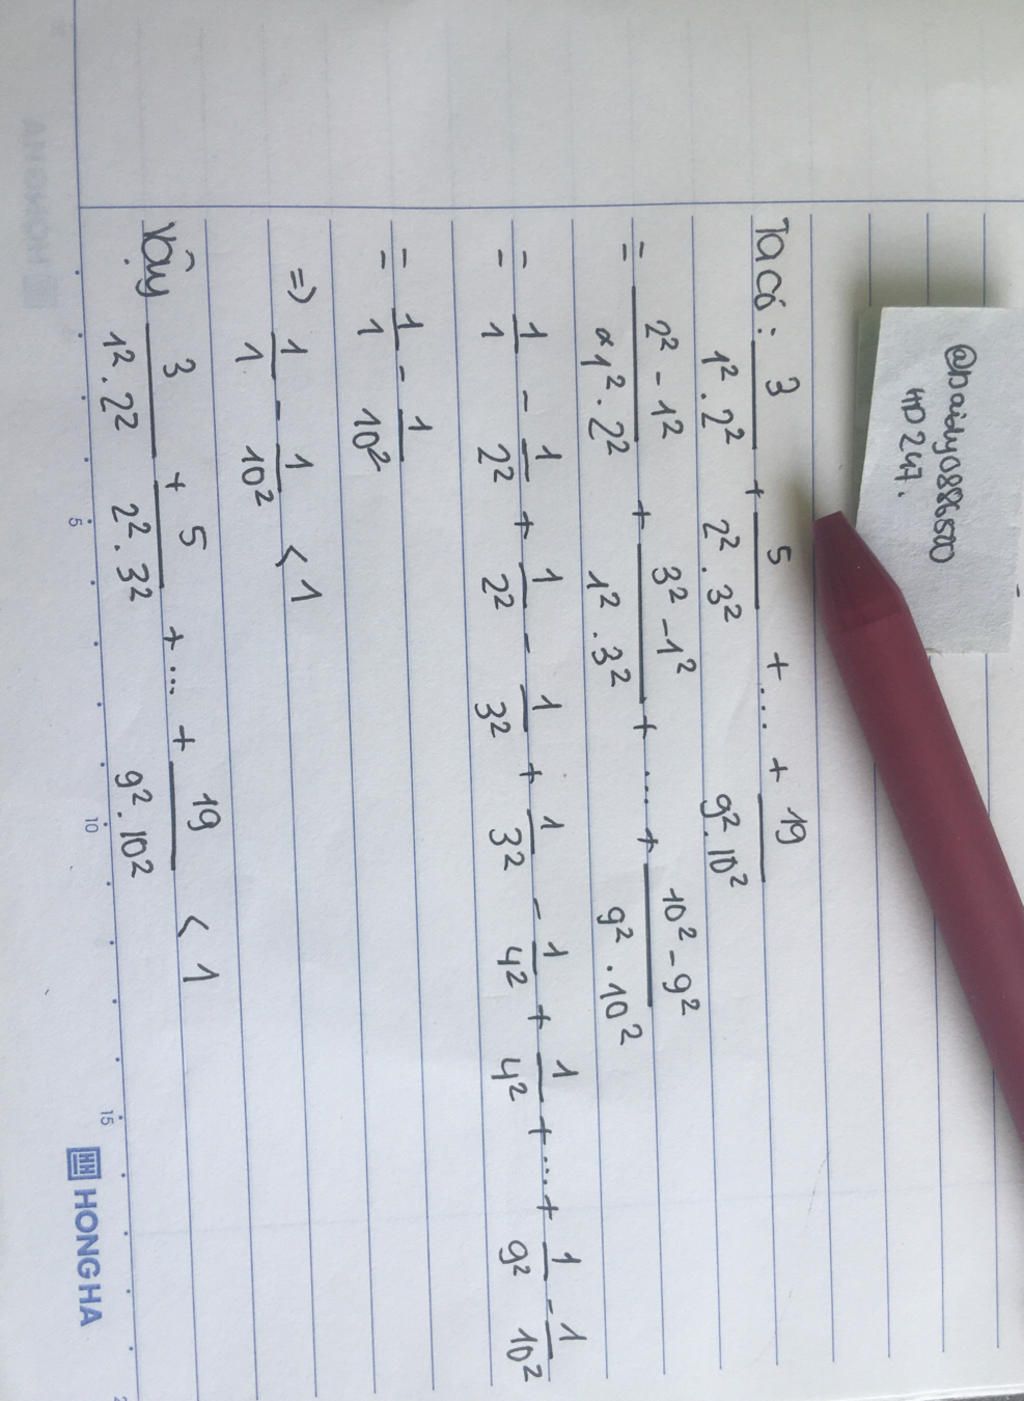 @baidy0886520
HD 247.
Ta có: 3/(1².2²) + 5/(2².3²) + .... + 19/(9².10²)
= (2² - 1²)/(1².2²) + (3² - 1²)/(1².3²) + .... + (10² - 9²)/(9².10²)
= 1/1 - 1/2² + 1/2² - 1/3² + 1/3² - 1/4² + 1/4² + ... + 1/9² - 1/10²
= 1/1 - 1/10²
=> 1/1 - 1/10² < 1
Vậy 3/(1².2²) + 5/(2².3²) + ... + 19/(9².10²) < 1
5 10 15
HH HONG HA